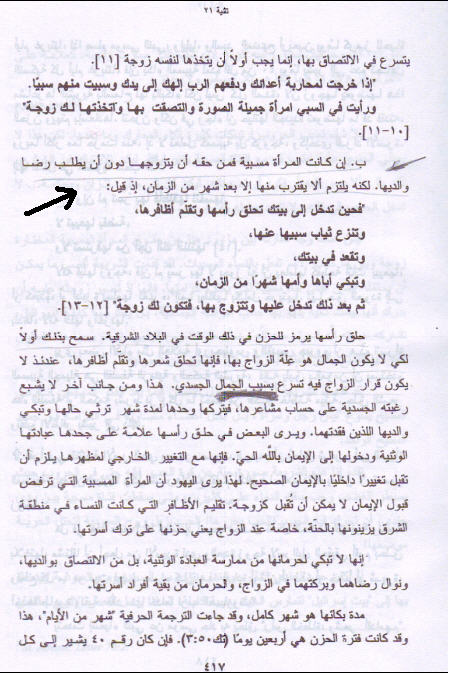 تثنية ٢١
يتسرع في الالتصاق بها، إنما يجب أولاً أن يتخذها لنفسه زوجة [١١].
"إذا خرجت لمحاربة أعدائك ودفعهم الرب إلهك إلى يدك وسبيت منهم سبيًا.
ورأيت في السبي امرأة جميلة الصورة والتصقت بها واتخذتها لك زوجة"
[١٠-١١].
ب. إن كانت المرأة مسبية فمن حقه أن يتزوجها دون أن يطلب رضا
والديها. لكنه يلتزم ألا يقترب منها إلا بعد شهر من الزمان، إذ قيل:
"فحين تدخل إلى بيتك تحلق رأسها وتقلّم أظافرها،
وتنزع ثياب سبيها عنها،
وتقعد في بيتك،
وتبكي أباها وأمها شهرًا من الزمان،
ثم بعد ذلك تدخل عليها وتتزوج بها، فتكون لك زوجة" [١٢-١٣].
حلق رأسها يرمز للحزن في ذلك الوقت في البلاد الشرقية. سمح بذلك أولاً
لكي لا يكون الجمال هو علّة الزواج بها، فإنها تحلق شعرها وتقلّم أظافرها، عندئذ لا
يكون قرار الزواج فيه تسرع بسبب الجمال الجسدي. هذا ومن جانب آخر لا يشبع
رغبته الجسدية على حساب مشاعرها، فيتركها وحدها لمدة شهر ترثي حالها وتبكي
والديها اللذين فقدتهما. ويرى البعض في حلق رأسها علامة على جحدها عبادتها
الوثنية ودخولها إلى الإيمان بالله الحيّ. فإنها مع التغيير الخارجي لمظهرها يلزم أن
تقبل تغييرًا داخليًا بالإيمان الصحيح. لهذا يرى اليهود أن المرأة المسبية التي ترفض
قبول الإيمان لا يمكن أن تُقبل كزوجة. تقليم الأظافر التي كانت النساء في منطقة
الشرق يزينونها بالحنّة، خاصة عند الزواج يعني حزنها على ترك أسرتها.
إنها لا تبكي لحرمانها من ممارسة العبادة الوثنية، بل من الالتصاق بوالديها،
ونوال رضاهما وبركتهما في الزواج، ولحرمان من بقية أفراد أسرتها.
مدة بكائها هو شهر كامل، وقد جاءت الترجمة الحرفية "شهر من الأيام"، هذا
وقد كانت فترة الحزن هي أربعين يومًا (تك٣:٥٠). فإن كان رقم ٤٠ يشير إلى كل
٤١٧